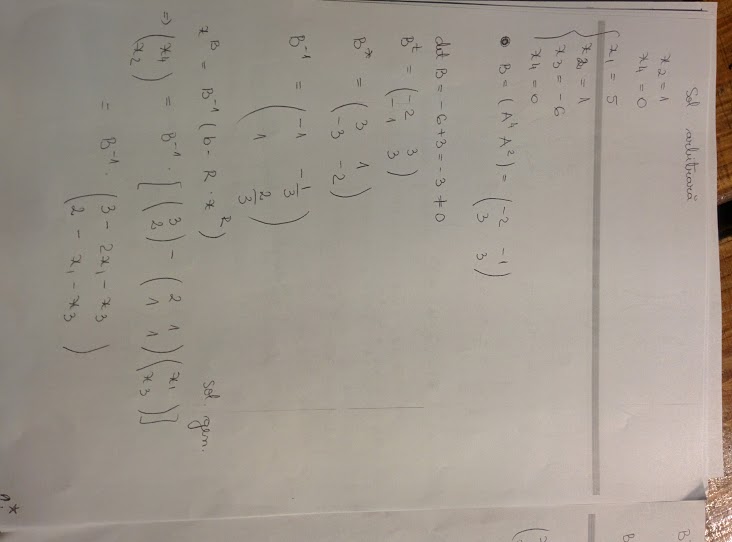 Sol arbitrară
x₂ = 1
x₄ = 0
{ x₁ = 5
x₂ = 1
x₃ = -6
x₄ = 0
• B = (A⁴ A²) = ( -2 -1
3 3 )
det B = -6+3 = -3 ≠ 0
Bᵗ = ( -2 3
-1 3 )
B* = ( 3 1
-3 -2 )
B⁻¹ = ( -1 -1/3
1 2/3 )
xᴮ = B⁻¹ (b - R · xᴿ) sol. gen.
=> ( x₄
x₂ ) = B⁻¹ · [ ( 3
2 ) - ( 2 1
1 1 ) ( x₁
x₃ ) ]
= B⁻¹ · ( 3 - 2x₁ - x₃
2 - x₁ - x₃ )
B
B